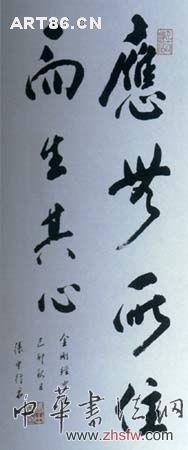 ART86.CN
應無所住
而生其心
金剛經句
己卯秋日
張中行
中華書法網
www.zhsfw.com